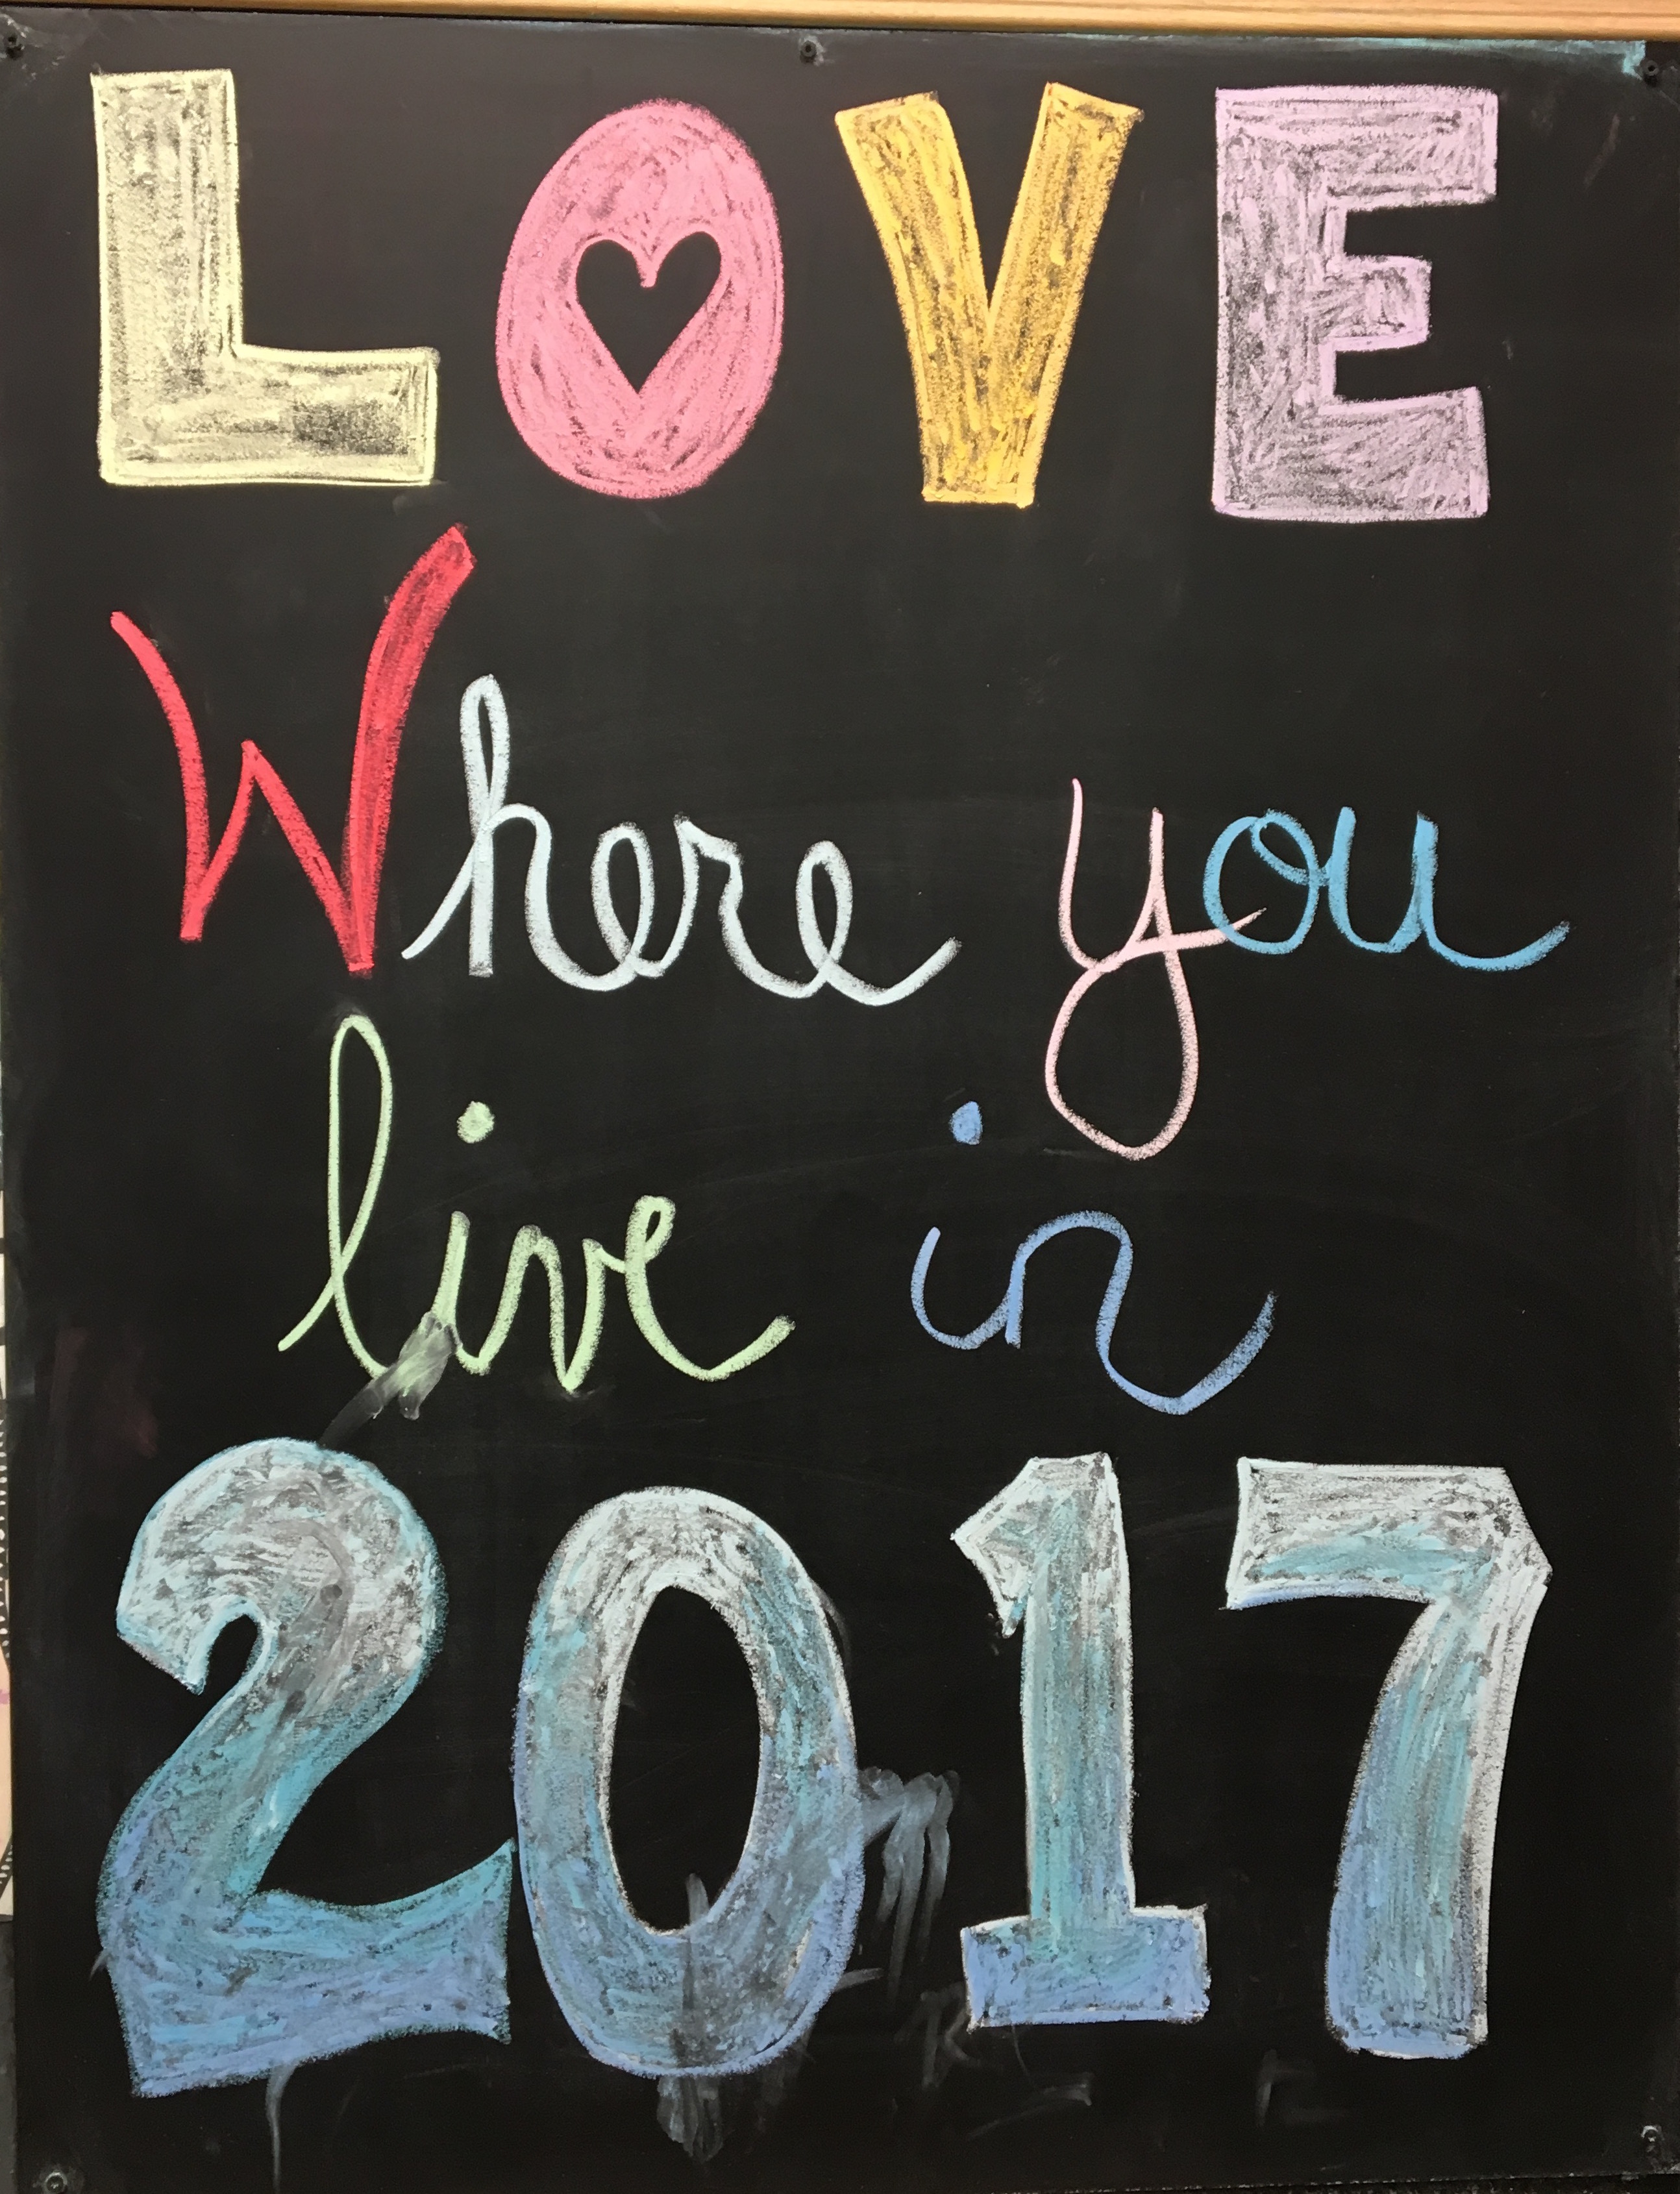 LOVE
Where you
live in
2017